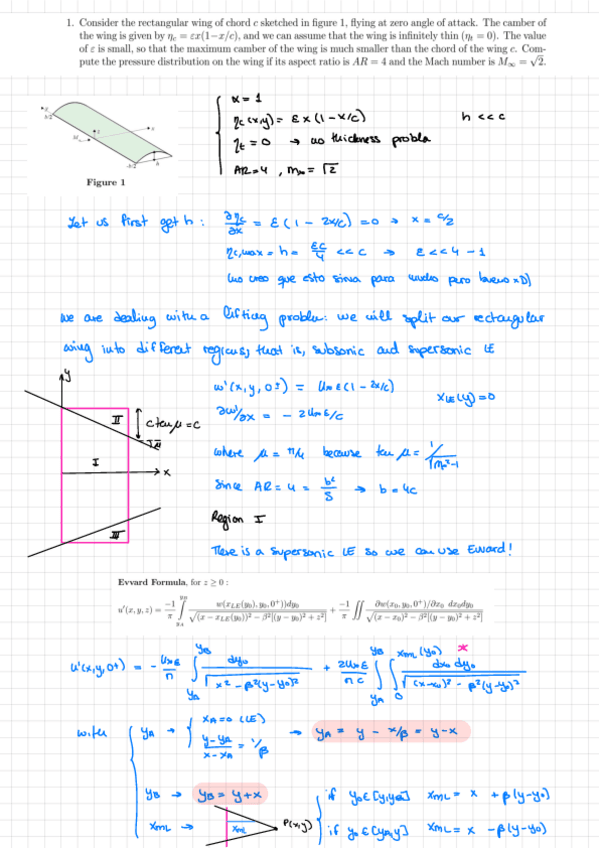 1. Consider the rectangular wing of chord c sketched in figure 1, flying at zero angle of attack. The camber of
the wing is given by η_c = εx(1−x/c), and we can assume that the wing is infinitely thin (η_t = 0). The value
of ε is small, so that the maximum camber of the wing is much smaller than the chord of the wing c. Com-
pute the pressure distribution on the wing if its aspect ratio is AR = 4 and the Mach number is M∞ = √2.
α = 1
η_c(x,y) = ε x (1 - x/c)
h << c
η_t = 0 → no thickness problem
AR = 4, M∞ = √2
Figure 1
Let us first get h : ∂η_c/∂x = ε(1 - 2x/c) = 0 → x = c/2
η_c,max = h = εc/4 << c → ε << 4 - 1
(no creo que esto sirva para mucho pero bueno xD)
We are dealing with a lifting problem: we will split our rectangular
wing into different regions, that is, subsonic and supersonic LE
y
w'(x,y,0±) = U∞ε(1 - 2x/c)
X_LE(y) = 0
∂w'/∂x = - 2U∞ε/c
II
c tan μ = c
μ
where μ = π/4 because tan μ = 1/√(M∞²-1)
I
x
Since AR = 4 = b²/S → b = 4c
Region I
III
There is a supersonic LE so we can use Evvard!
Evvard Formula, for z ≥ 0 :
u'(x, y, z) = −1/π ∫_{y_A}^{y_B} w(x_LE(y_0), y_0, 0⁺))dy_0 / √((x − x_LE(y_0))² − β²[(y − y_0)² + z²] + −1/π ∬ ∂w(x_0, y_0, 0⁺)/∂x_0 dx_0dy_0 / √((x − x_0)² − β²[(y − y_0)² + z²]
u'(x,y,0+) = - U∞ε/π ∫_{y_A}^{y_B} dy_0 / √(x² - β²(y-y_0)²) + 2U∞ε/πc ∫_{y_A}^{y_B} ∫_0^{X_ML(y_0)*} dx_0 dy_0 / √((x-x_0)² - β²(y-y_0)²)
with
y_A → { X_A = 0 (LE)
y-y_A / x-x_A = 1/β
→ y_A = y - x/β = y-x
y_B → y_B = y+x
X_ML →
X_ML
P(x,y)
if y_0 ∈ [y,y_B] X_ML = x + β(y-y_0)
if y_0 ∈ [y_A,y] X_ML = x - β(y-y_0)